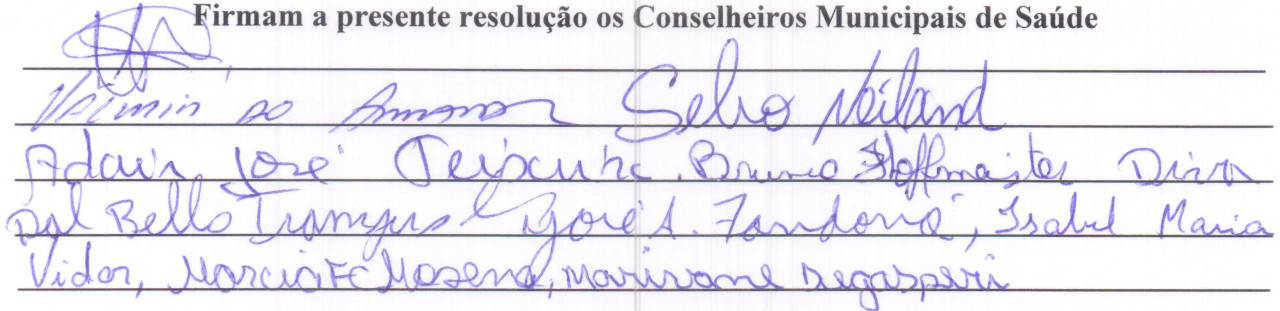 Firmam a presente resolução os Conselheiros Municipais de Saúde
Valmir do Amaran Selvo Neiland
Adair José Teixeira. Bruno Hoffmaister Diva
Dal Bello Trampus José A. Zandoná, Isabel Maria
Vidor, Marcia FC Masena, Marivane Degasperi